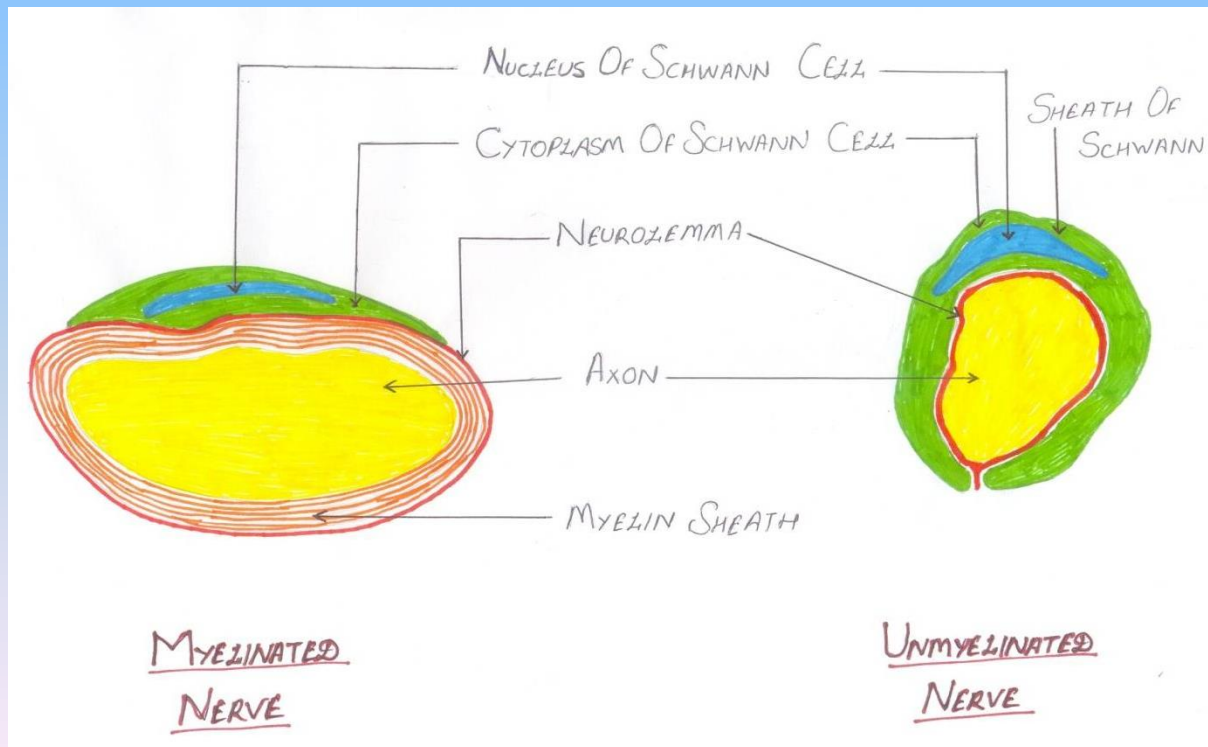 NUCLEUS OF SCHWANN CELL
SHEATH OF
SCHWANN
CYTOPLASM OF SCHWANN CELL
NEUROLEMMA
AXON
MYELIN SHEATH
MYELINATED
NERVE
UNMYELINATED
NERVE